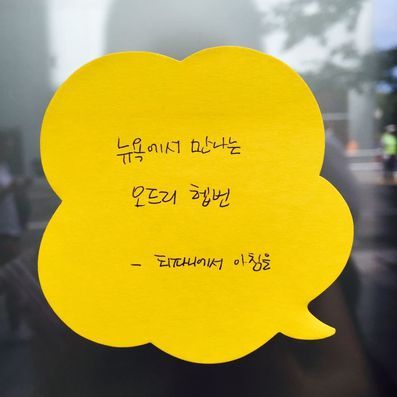 뉴욕에서 만나는
오드리 헵번
- 티파니에서 아침을